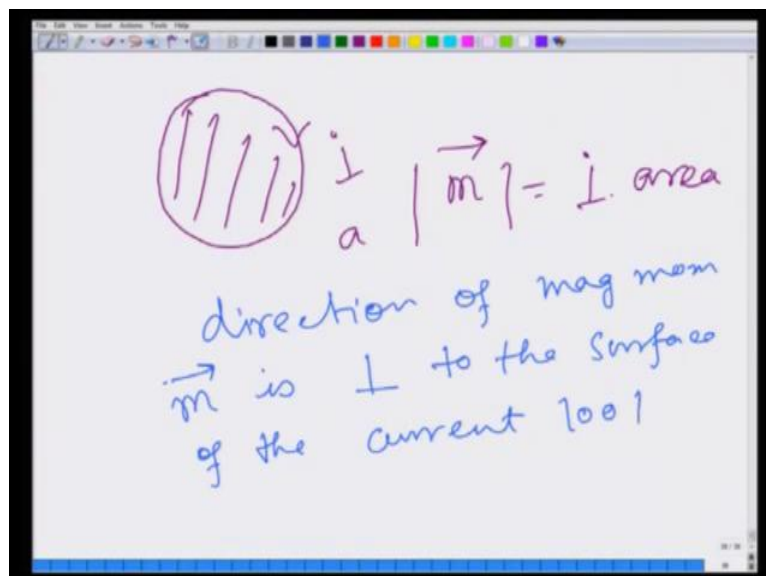 File Edit View Insert Actions Tools Help
i
a |m⃗| = i. area
direction of mag mom
m⃗ is ⊥ to the surface
of the current loop